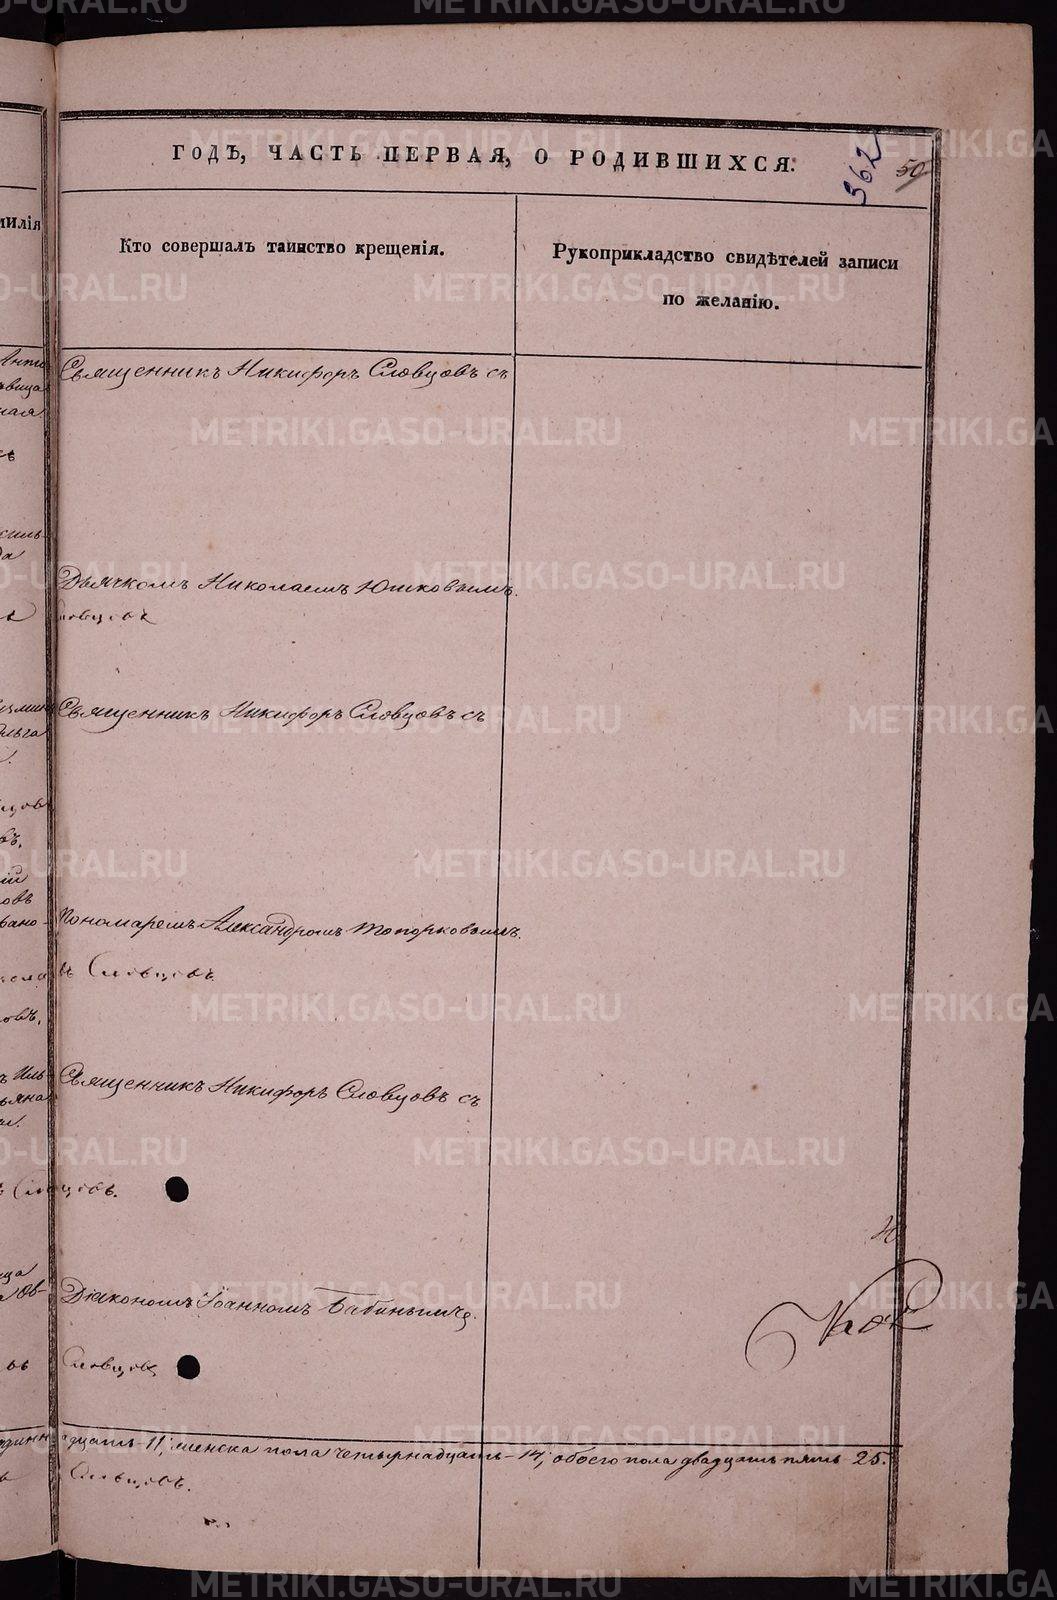 ГОДѢ, ЧАСТЬ ПЕРВАЯ, О РОДИВШИХСЯ.
362
50
милія
Кто совершалъ таинство крещенія.
Рукоприкладство свидѣтелей записи
по желанію.
Священникъ Никифоръ Словцовъ съ
Дьячкомъ Николаемъ Юшковымъ.
Священникъ Никифоръ Словцовъ съ
Пономаремъ Александромъ Топорковымъ.
въ Словцовъ.
Священникъ Никифоръ Словцовъ съ
Словцовъ.
Діакономъ Іоанномъ Бабинымъ.
Словцовъ
адцать 11, женска пола четырнадцать 14, обоего пола двадцать пять 25.
Словцовъ.
METRIKI.GASO-URAL.RU